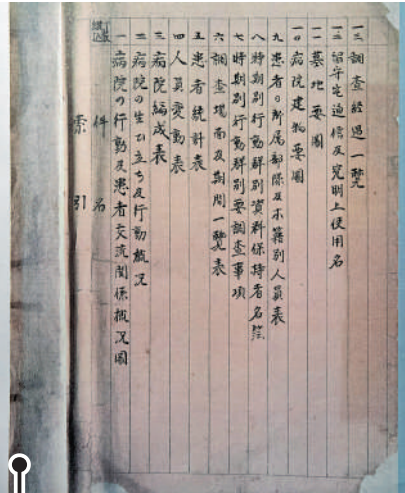 件名
索引
一 病院の行動及患者交流関係概況図
二 病院の生ひ立ち及行動概况
三 病院編成表
四 人員変動表
五 患者統計表
六 調査場面及期間一覽表
七 時期別行動群別要調査事項
八 時期別行動群別資料保持者名簿
九 患者の所属部隊及本籍別人員表
一〇 病院建物要圖
一一 墓地要圖
一二 留守宅通信及究明上使用名
一三 調査経過一覽